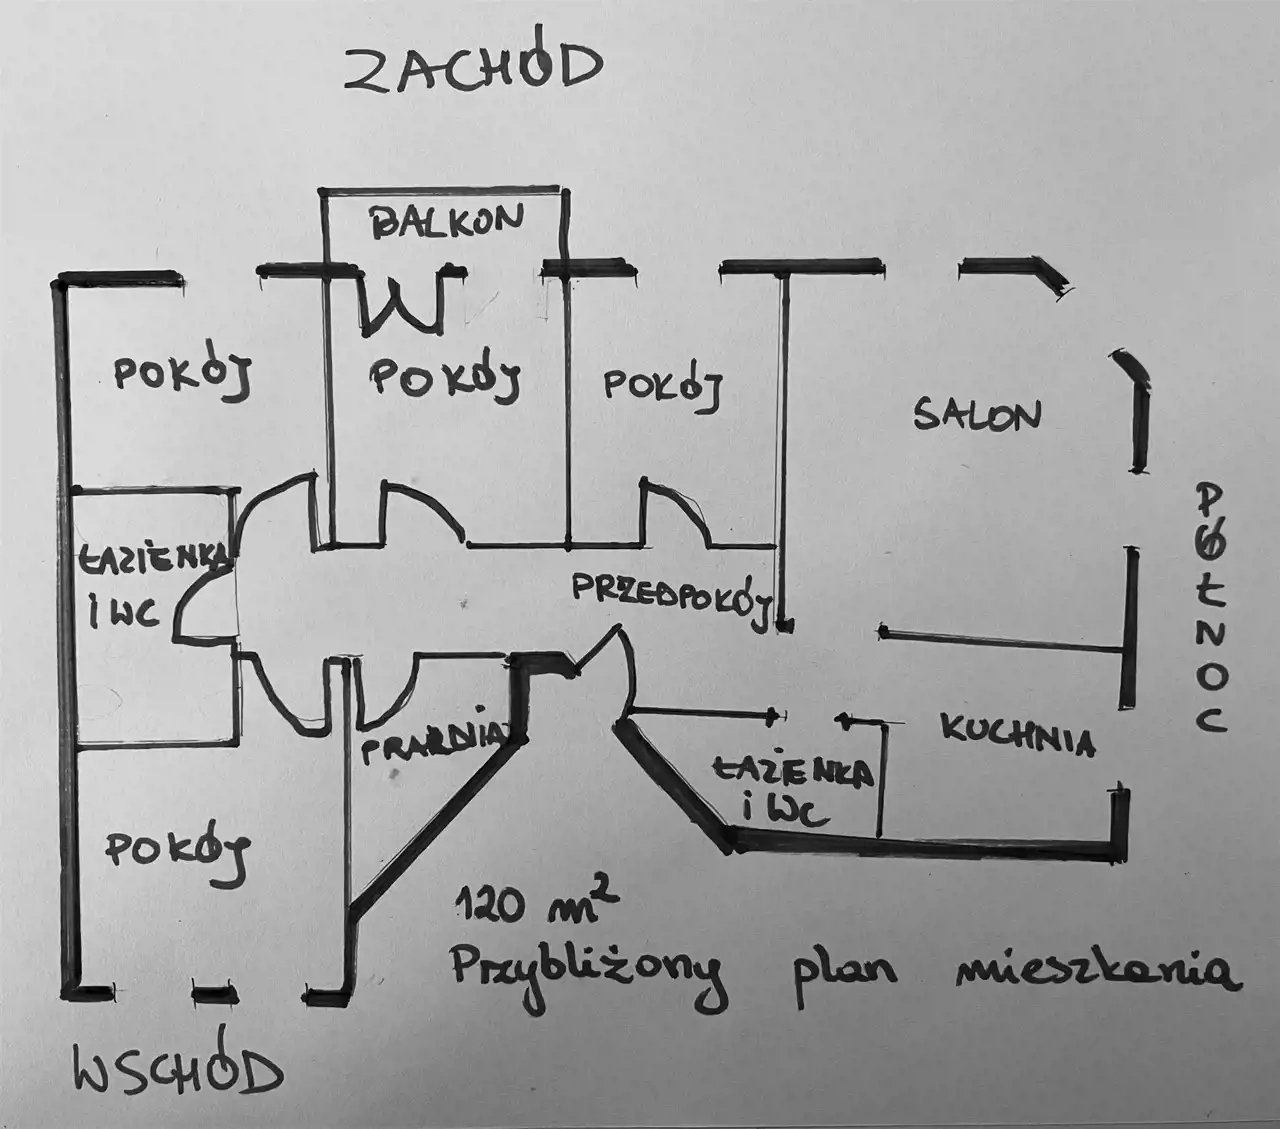 ZACHÓD
BALKON
POKÓJ
POKÓJ
POKÓJ
SALON
PÓŁNOC
ŁAZIENKA
I WC
PRZEDPOKÓJ
PRALNIA
KUCHNIA
ŁAZIENKA
i WC
POKÓJ
120 m²
Przybliżony plan mieszkania
WSCHÓD